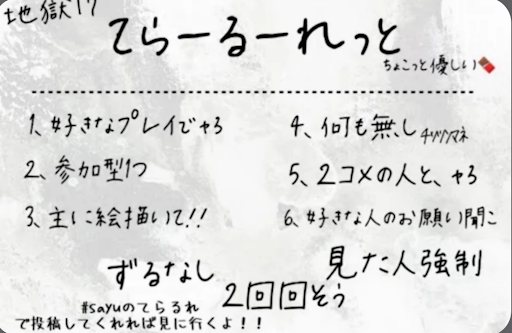 地獄!?
てらーるーれっと
ちょこっと優しい🍫
1、好きなプレイでやろ
2、参加型1つ
3、主に絵描いて!!
4、何も無し チソソクマネ
5、2コメの人と、やろ
6、好きな人のお願い聞こ
ずるなし
見た人強制
2回回そう
#sayuのてらるれ
で投稿してくれれば見に行くよ!!